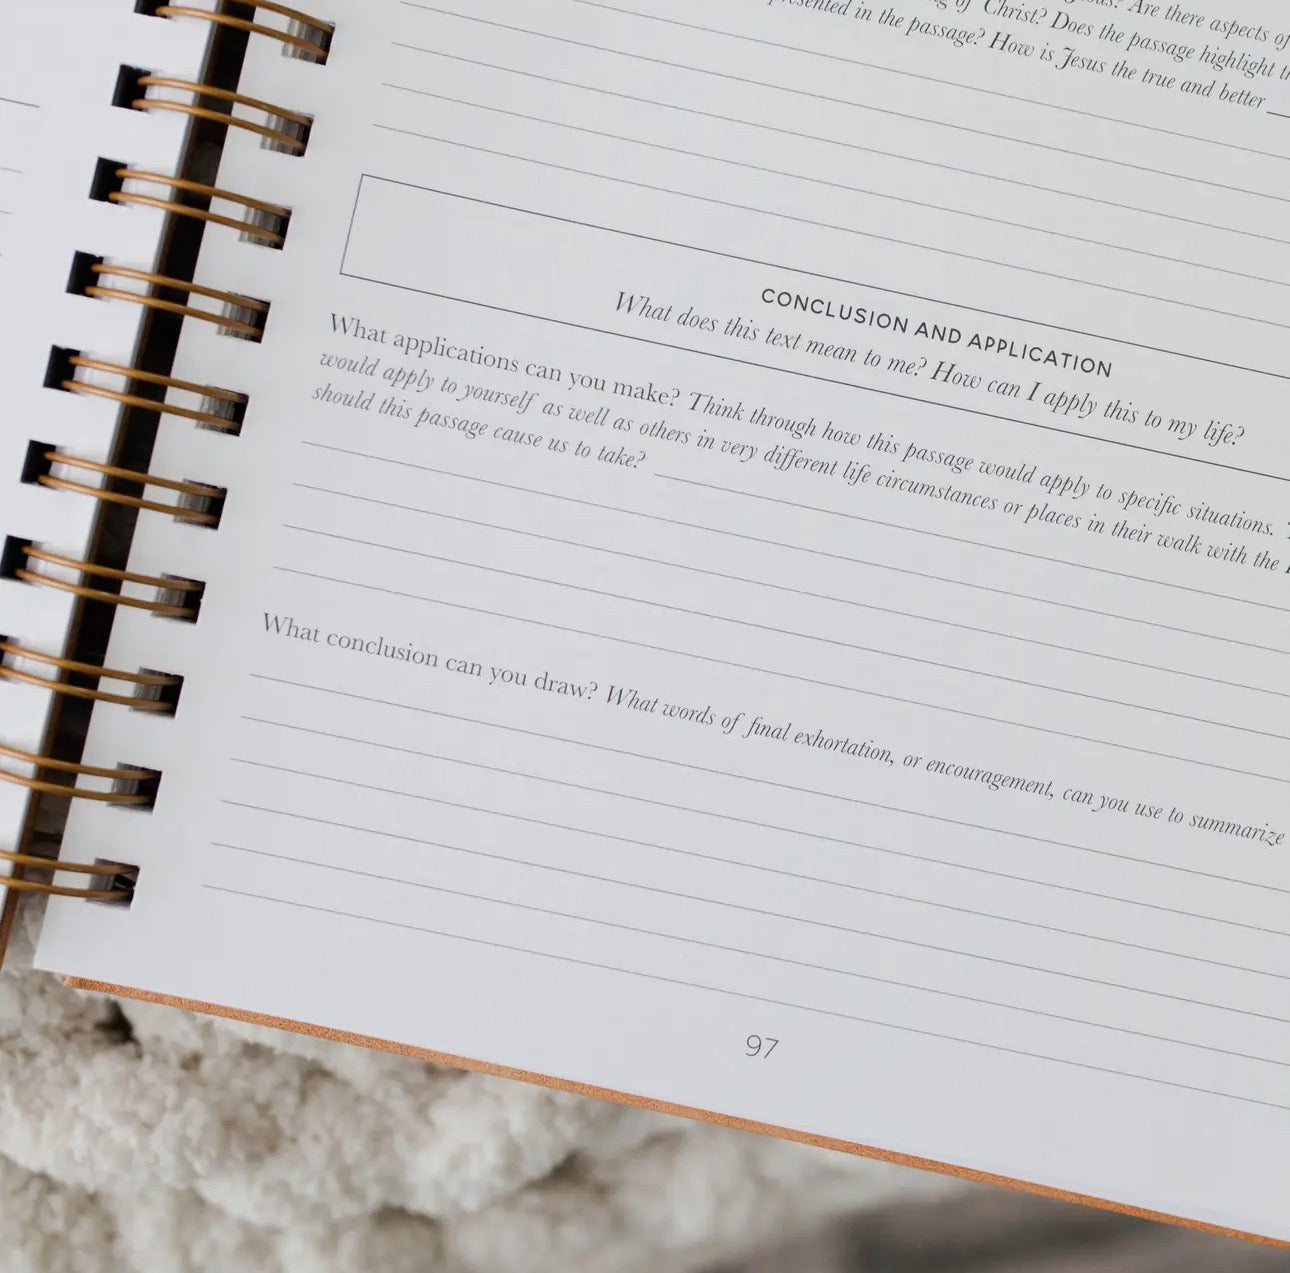 Are there aspects of
of Christ? Does the passage highlight
in the passage? How is Jesus the true and better
CONCLUSION AND APPLICATION
What does this text mean to me? How can I apply this to my life?
What applications can you make? Think through how this passage would apply to specific situations.
would apply to yourself as well as others in very different life circumstances or places in their walk with the
should this passage cause us to take?
What conclusion can you draw? What words of final exhortation, or encouragement, can you use to summarize
97